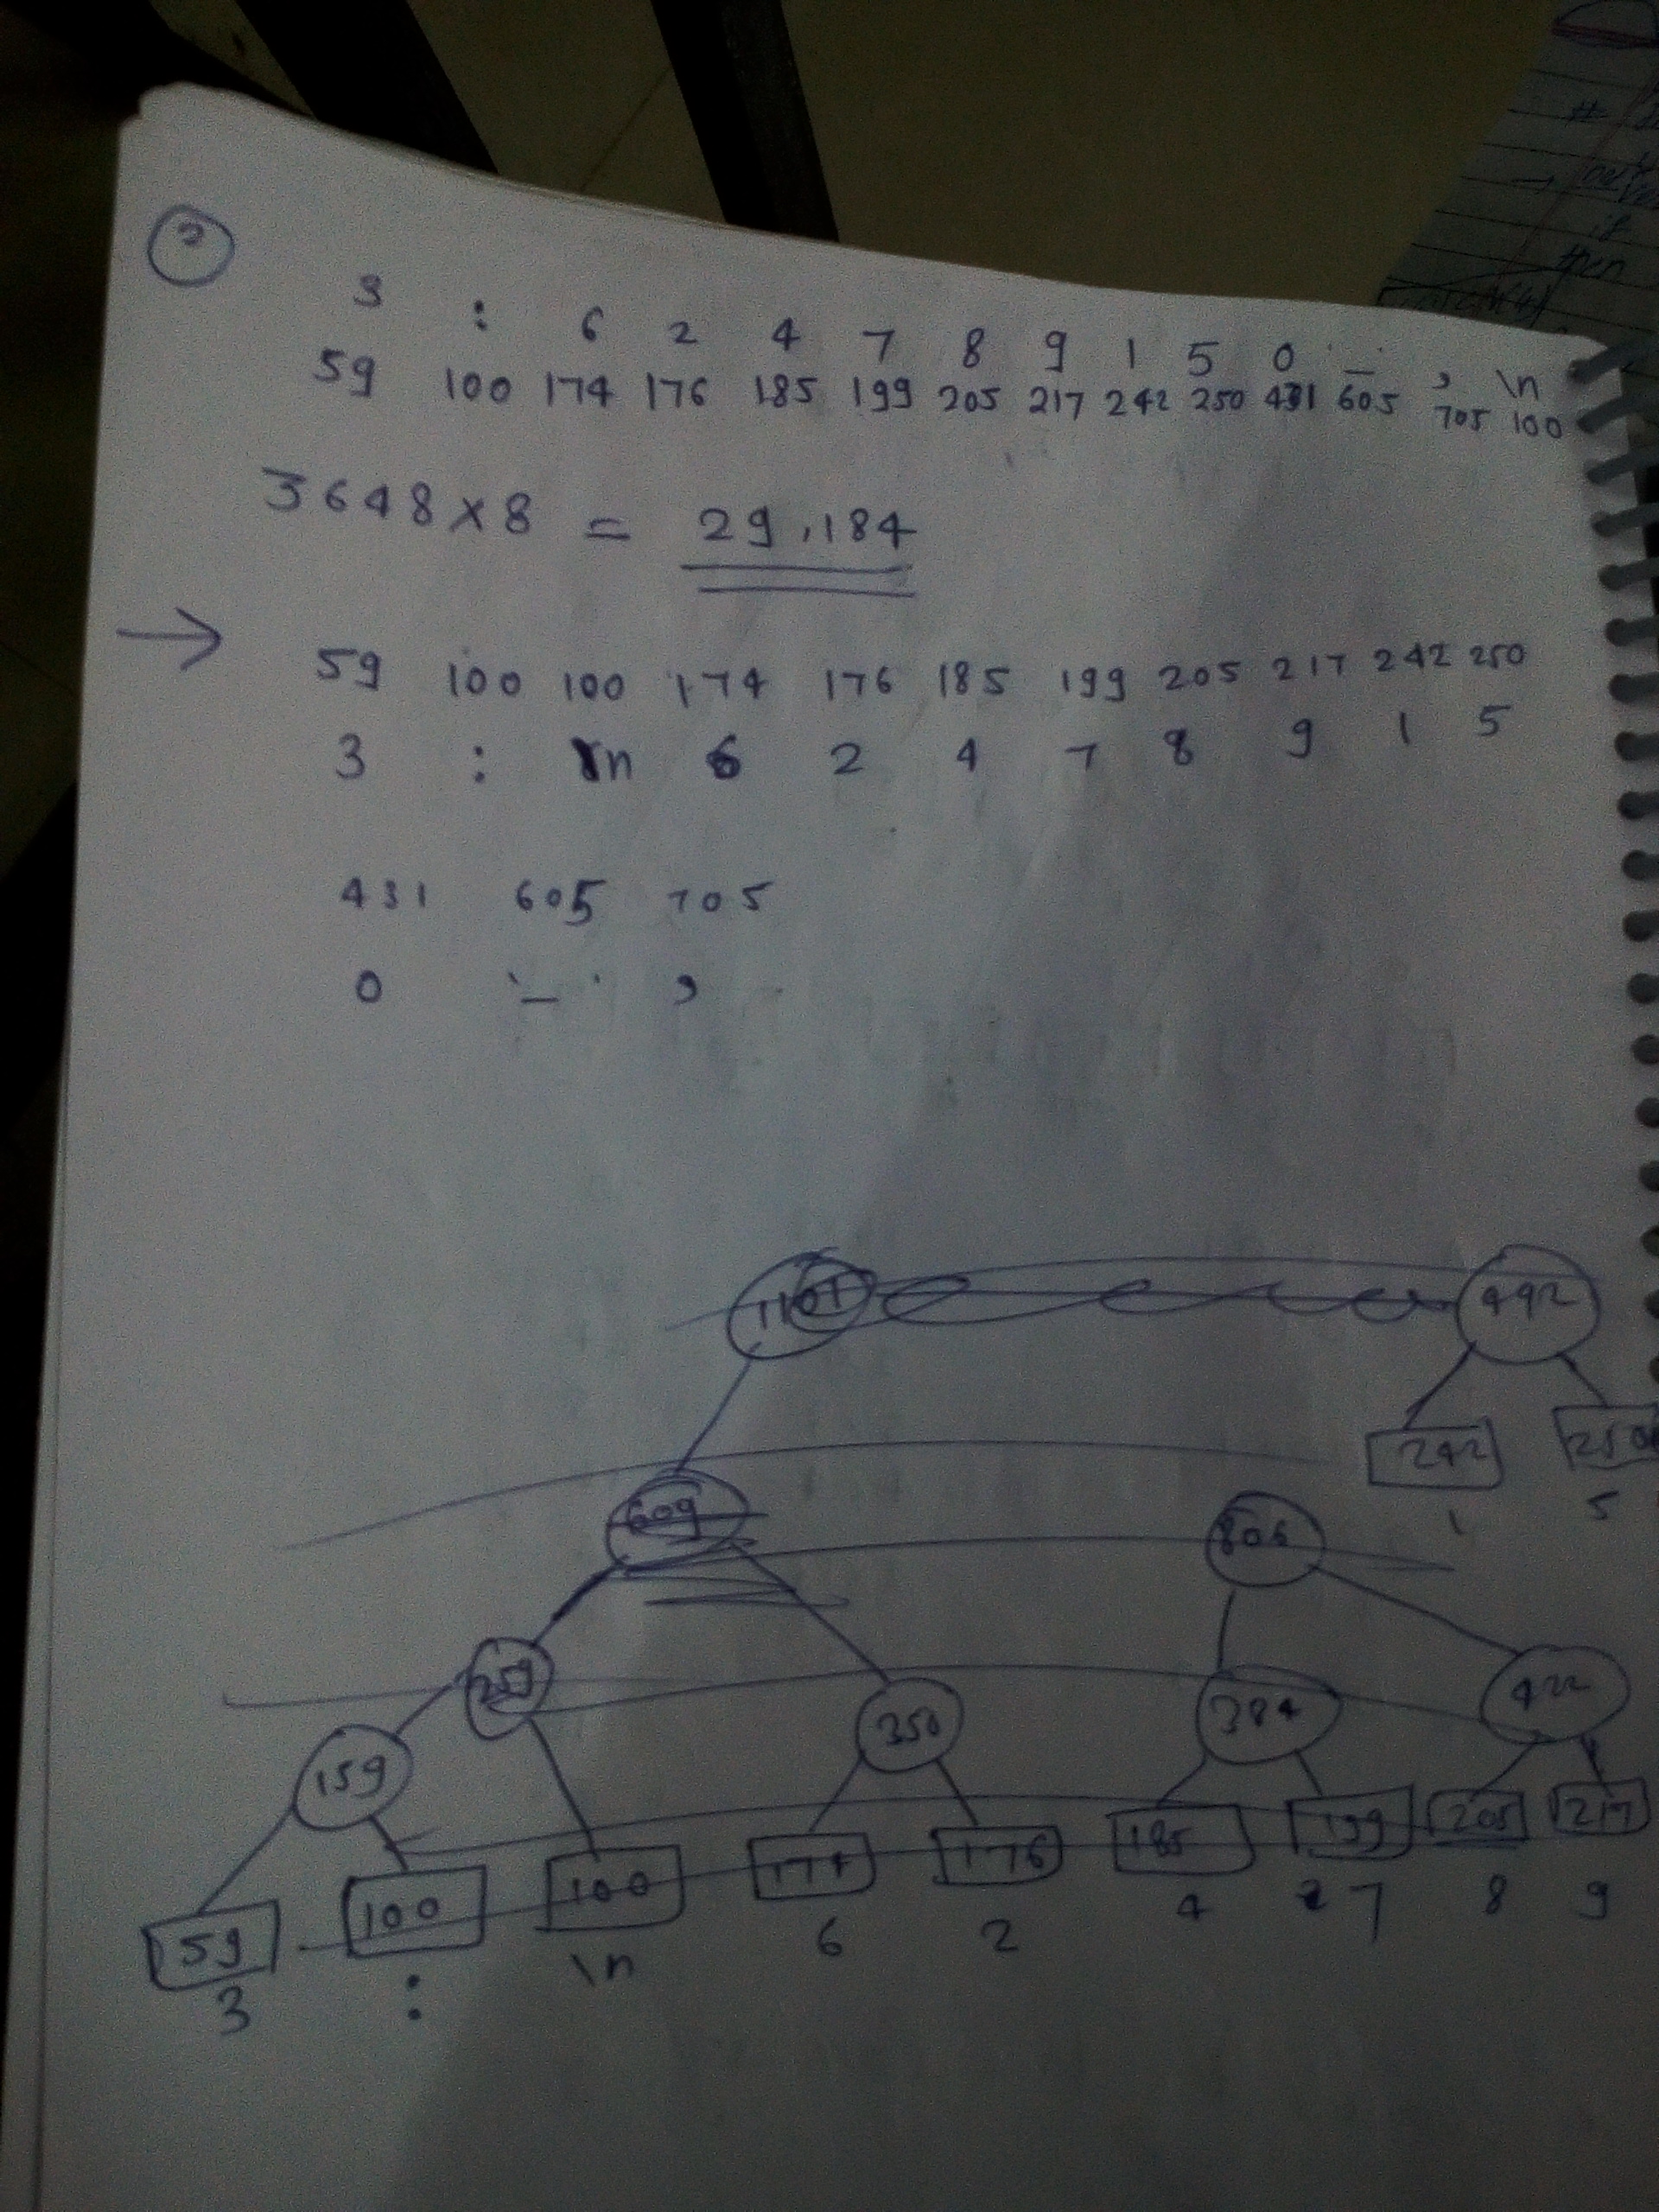 2
3 : 6 2 4 7 8 9 1 5 0 '_' , \n
59 100 174 176 185 199 205 217 242 250 431 605 705 100
3648 x 8 = 29,184
→ 59 100 100 174 176 185 199 205 217 242 250
3 : \n 6 2 4 7 8 9 1 5
431 605 705
0 '_' ,
1101 492
242 250
1 5
609 806
259 350 384 422
159
185 199 205 217
100 100 174 176
59
4 7 8 9
6 2
\n
3 :
#
if
then